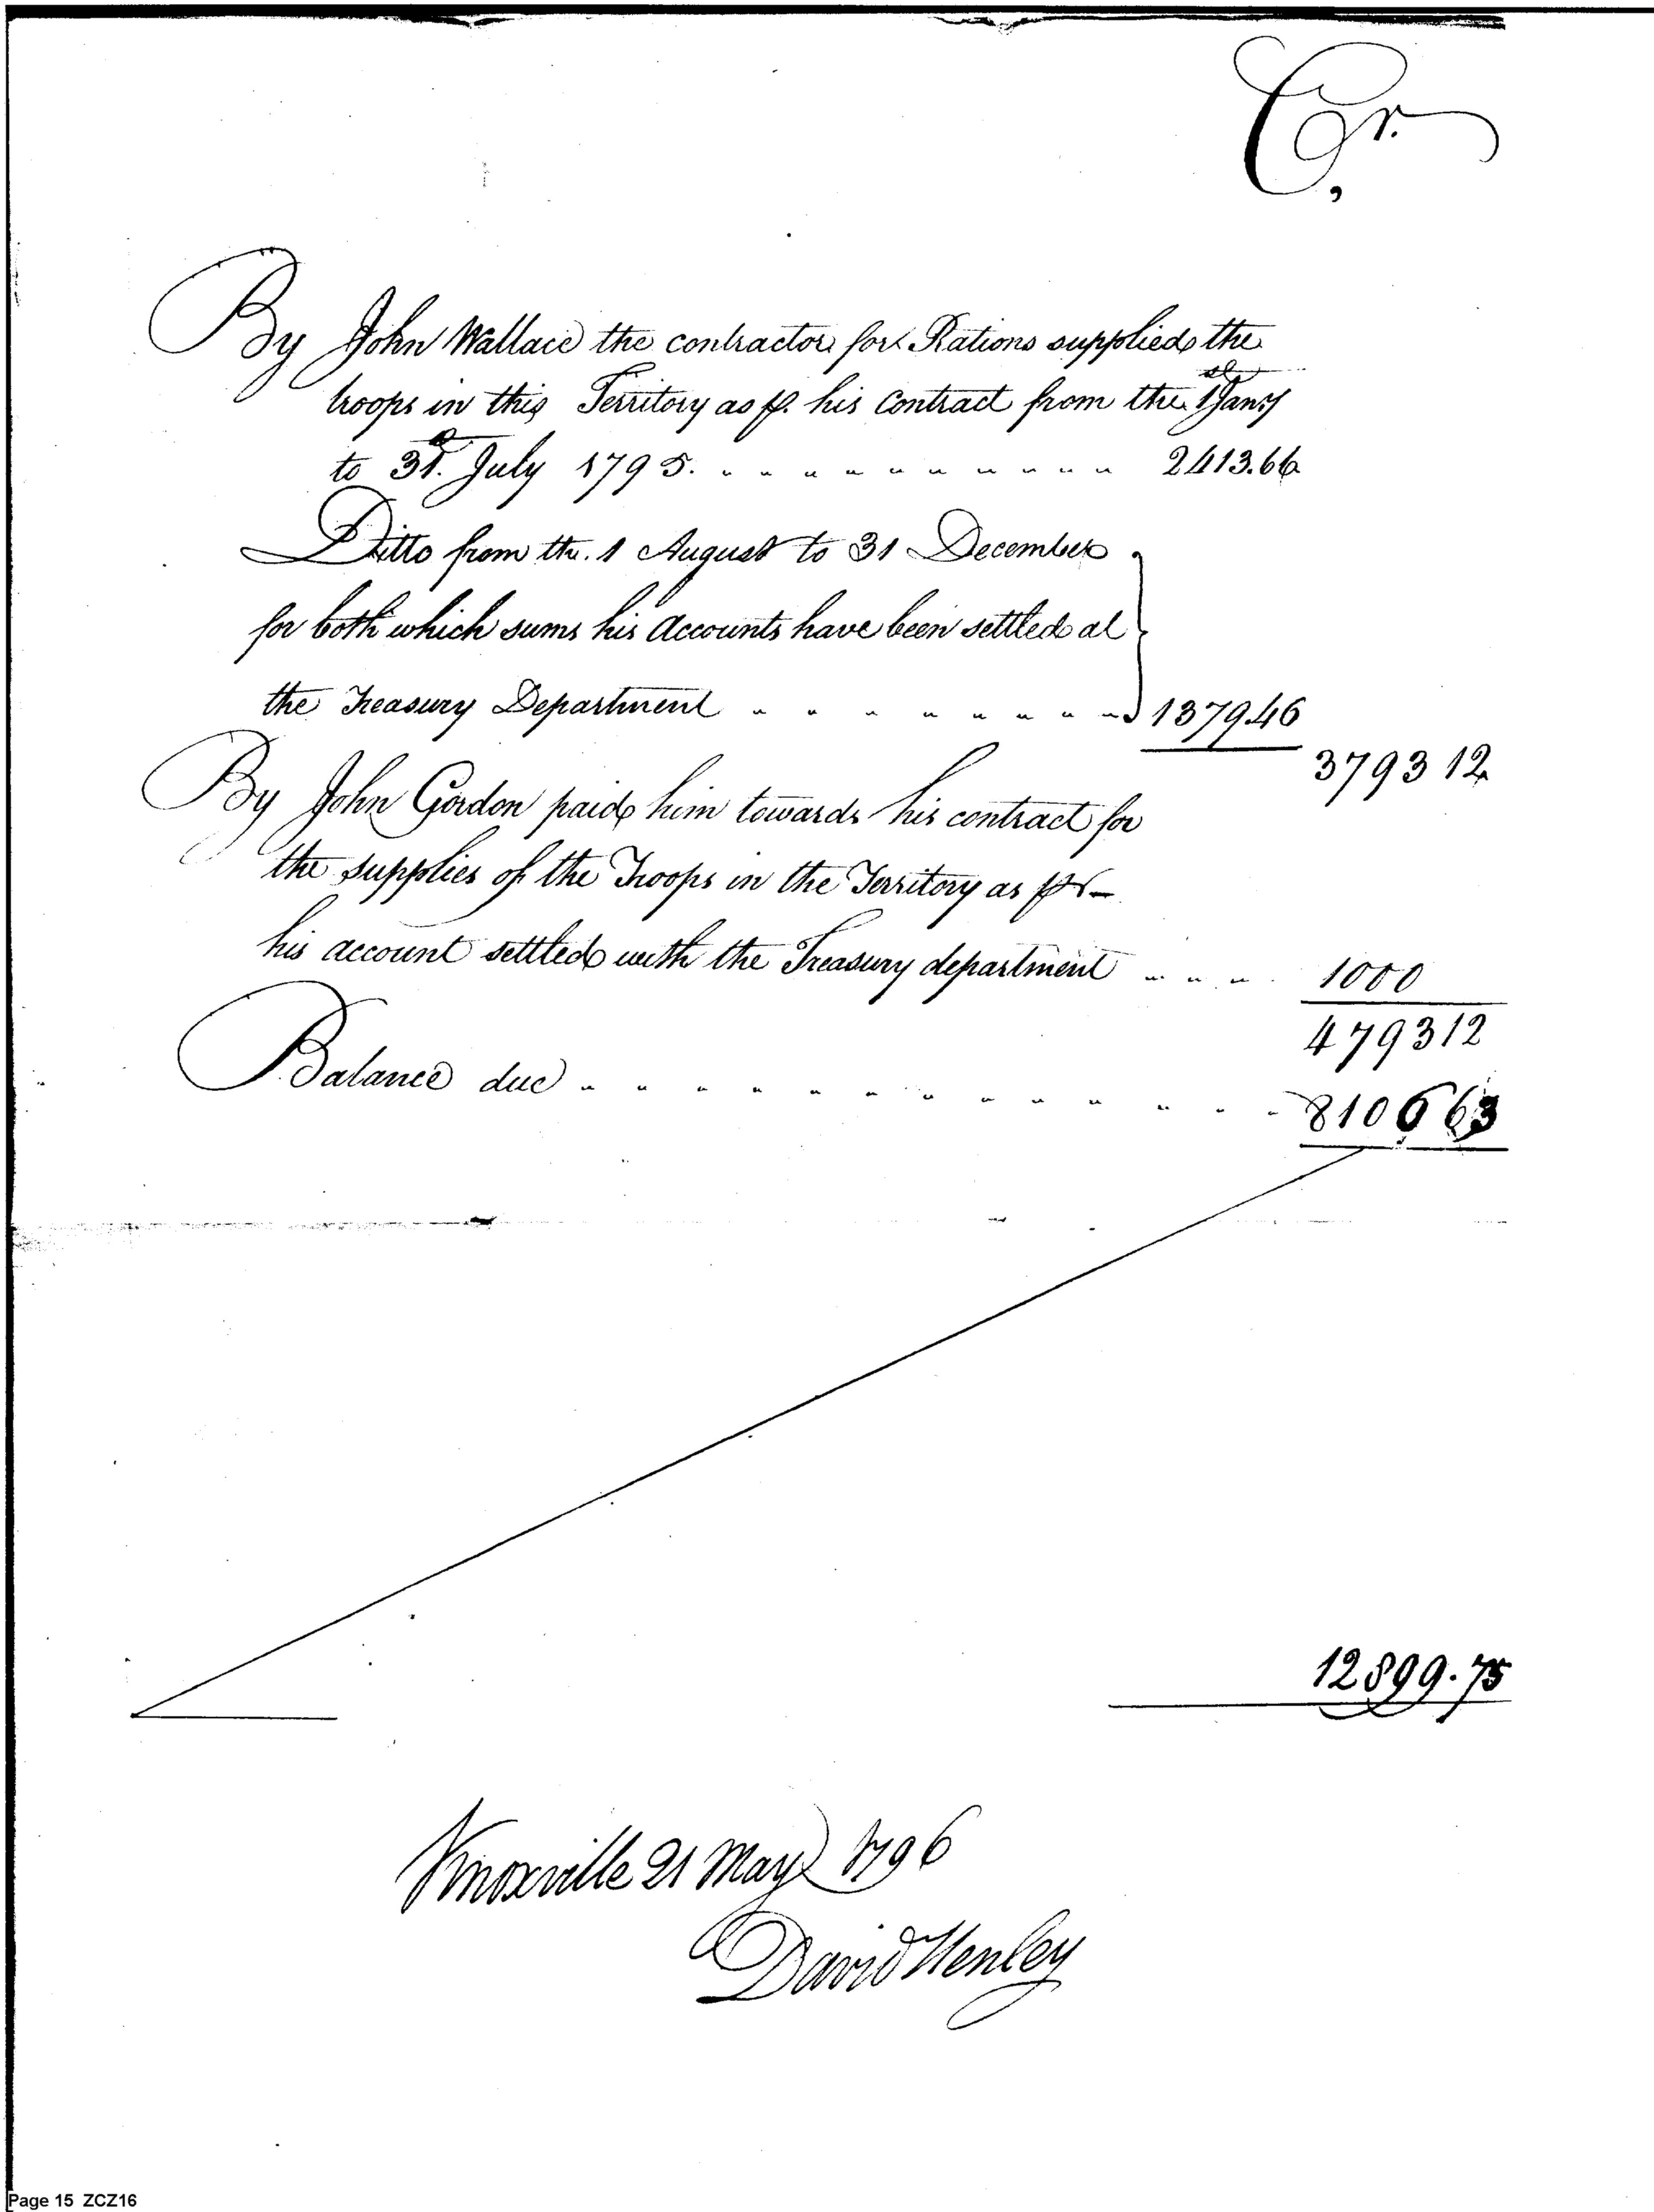 Cr.
By John Wallace the contractor for Rations supplied the
troops in this Territory as p. his contract from the 1st Jany
to 31st July 1795. 2413.66
Ditto from the. 1 August to 31 December
for both which sums his accounts have been settled at
the Treasury Department 1379.46
3793 12
By John Gordon paid him towards his contract for
the supplies of the Troops in the Territory as pr
his account settled with the Treasury department 1000
4793 12
Balance due 8106 63
12899.75
Knoxville 21 May 1796
David Henley
Page 15 ZCZ16